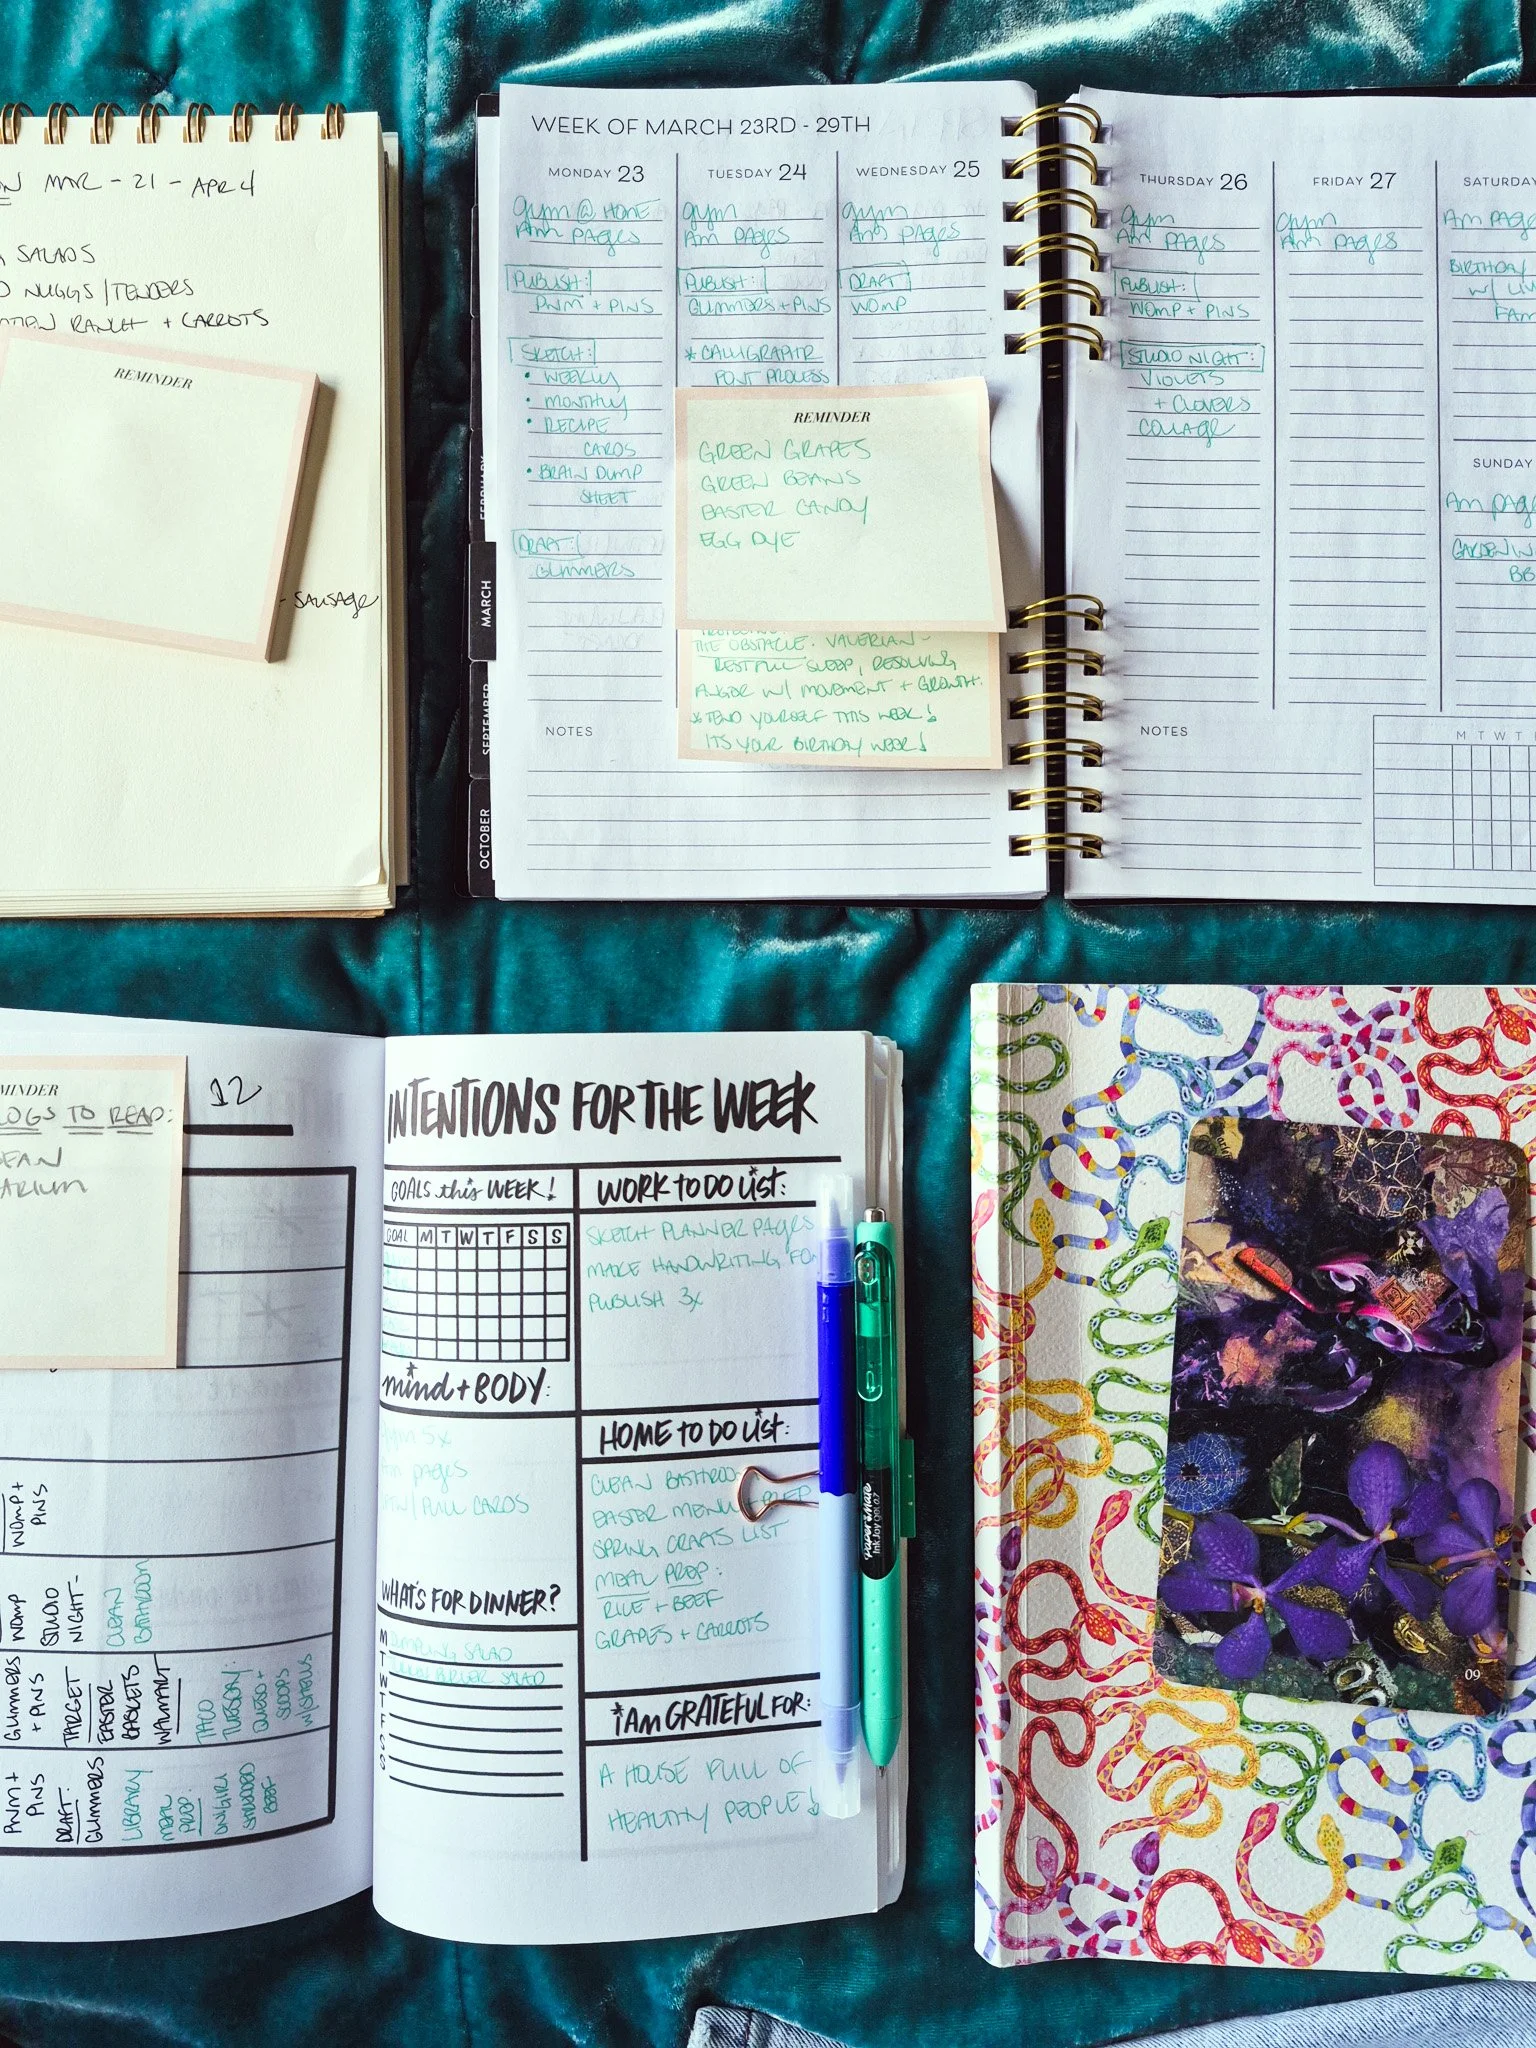 MAR - 21 - APR 4
SALADS
NUGGS/TENDERS
RANCH + CARROTS
REMINDER
- SAUSAGE
WEEK OF MARCH 23RD - 29TH
MONDAY 23
gym @ HOME
Am PAGES
PUBLISH:
PWM + PINS
SKETCH:
• WEEKLY
• MONTHLY
• RECIPE
CARDS
• BRAIN DUMP
SHEET
DRAFT:
GLIMMERS
TUESDAY 24
gym
Am PAGES
PUBLISH:
GLIMMERS + PINS
* CALLIGRAPHR
FONT PROCESS
WEDNESDAY 25
gym
Am PAGES
DRAFT:
WOMP
REMINDER
GREEN GRAPES
GREEN BEANS
EASTER CANDY
EGG DYE
THE OBSTACLE: VALERIAN -
RESTFUL SLEEP, RESOLVING
ANGER W/ MOVEMENT + GROWTH.
* TEND YOURSELF THIS WEEK!
ITS YOUR BIRTHDAY WEEK!
NOTES
FEBRUARY
MARCH
SEPTEMBER
OCTOBER
THURSDAY 26
gym
Am PAGES
PUBLISH:
WOMP + PINS
STUDIO NIGHT:
VIOLETS
+ CLOVERS
COLLAGE
FRIDAY 27
gym
Am PAGES
SATURDAY
Am PAGE
BIRTHDAY
W/
FAM
SUNDAY
Am PAGE
GARDEN
BB
NOTES
M T W T F
REMINDER
TO READ:
12
WOMP +
PINS
WOMP
STUDIO
NIGHT -
CLEAN
BATHROOM
GLIMMERS
+ PINS
TARGET
EASTER
BASKETS
WALMART
TACO
TUESDAY:
QUESO +
PWM +
PINS
DRAFT:
GLIMMERS
LIBRARY
MEAL
PREP:
ONIGIRI
SHREDDED
BEEF
INTENTIONS FOR THE WEEK
GOALS this WEEK!
GOAL M T W T F S S
mind + BODY:
gym 5x
Am pages
/PULL CARDS
WHAT'S FOR DINNER?
M DUMPLING SALAD
T BURGER SALAD
W
T
F
S
S
WORK TO DO LIST:
SKETCH PLANNER PAGES
MAKE HANDWRITING FO
PUBLISH 3x
HOME TO DO LIST:
CLEAN BATHROO
EASTER MENU + PREP
SPRING CRAFTS LIST
MEAL PREP:
RICE + BEEF
GRAPES + CARROTS
i Am GRATEFUL FOR:
A HOUSE FULL OF
HEALTHY PEOPLE!
Paper Mate
InkJoy Gel 0.7
09